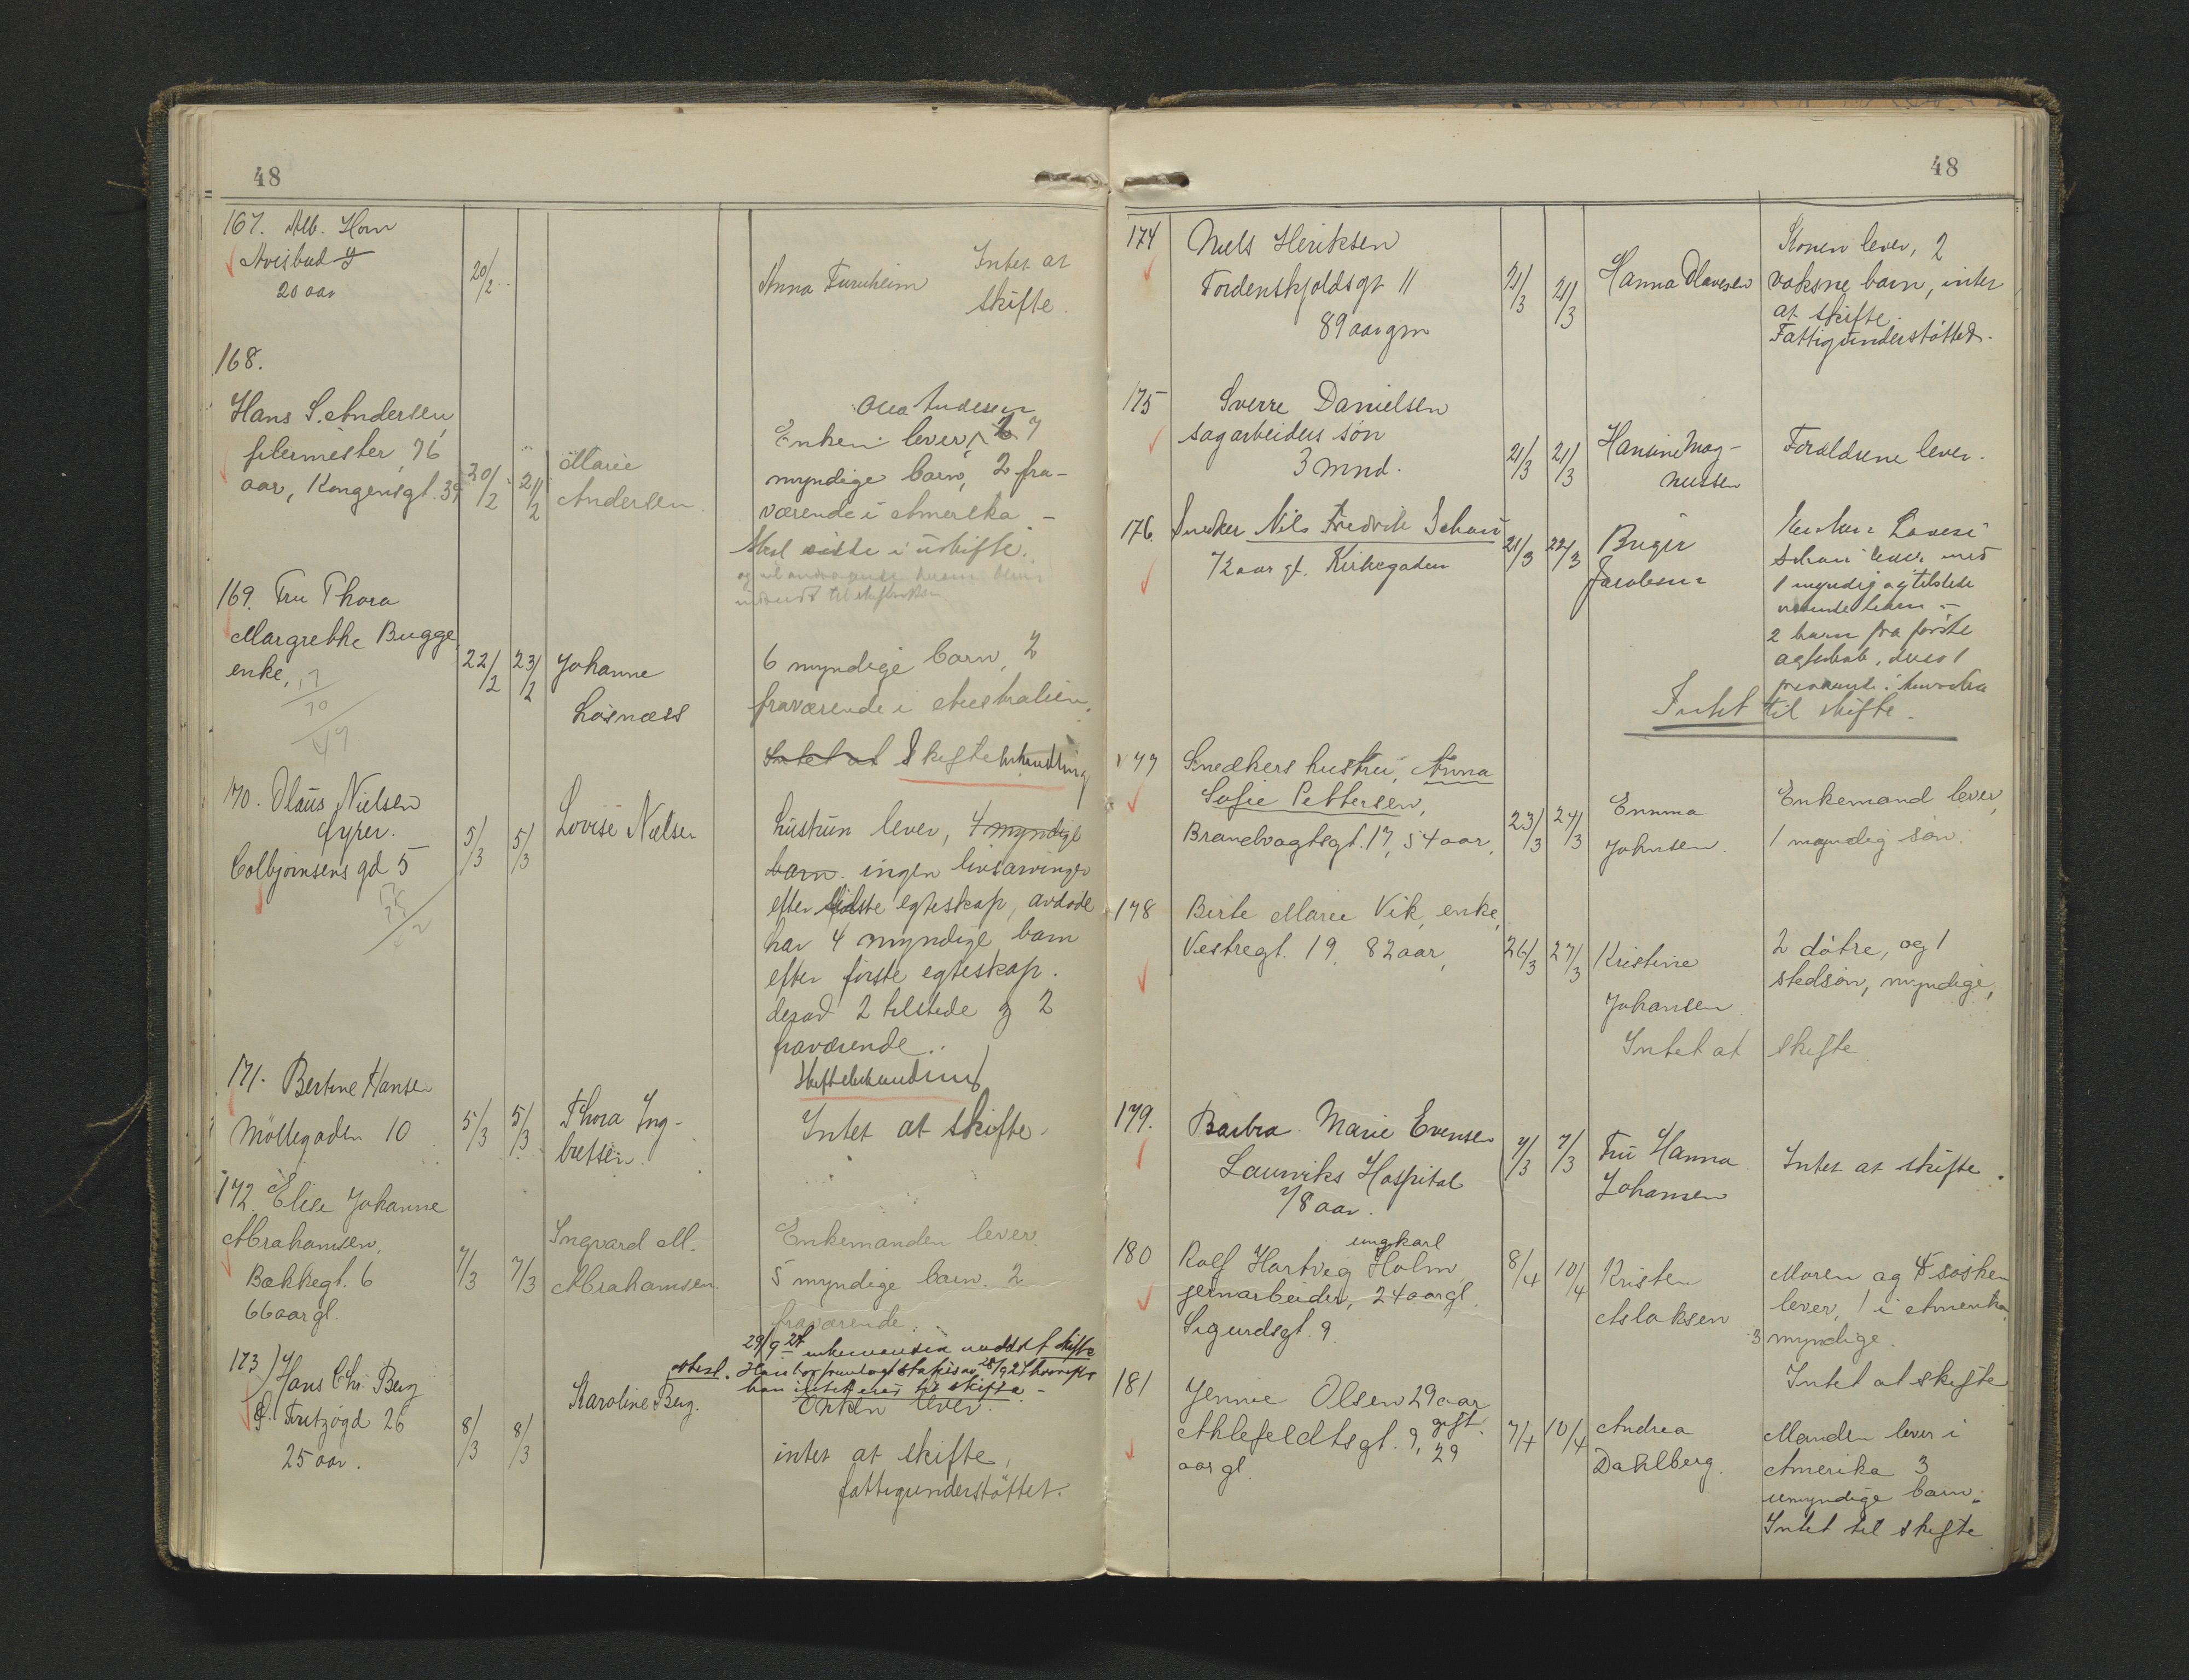 48
167. Alb. Horn
Avisbud
20 aar
20/2
Anna Furuheim
Intet at
skifte.
168.
Hans S. Andersen,
filermester, 76
aar, Kongensgt. 39
20/2
21/2
Marie
Andersen.
Olea Andersen
Enken lever, 7
myndige barn, 2 fra-
værende i Amerika. -
Skal sitte i uskifte.
169. Fru Thora
Margrethe Bugge
enke,
22/2
23/2
Johanne
Løsnæss
6 myndige barn, 2
fraværende i Australien.
Intet at Skiftebehandling
170. Olaus Nielsen
fyrer.
Colbjørnsens gd 5
5/3
5/3
Lovise Nielsen
hustrun lever, 4 myndige
barn. ingen livsarvinger
efter sidste egteskap, avdøde
har 4 myndige barn
efter første egteskap.
derav 2 tilstede og 2
fraværende.
Skiftebehandling
171. Bertine Hansen
Möllegaden 10
5/3
5/3
Thora Ing-
bretsen.
Intet at skifte.
172. Elise Johanne
Abrahamsen,
Bakkegt. 6
66 aar gl.
7/3
7/3
Ingvard M.
Abrahamsen.
Enkemanden lever.
5 myndige barn. 2
fraværende.
29/9 24 enkemanden uskifte
han intet til skifte -
173) Hans Chr. Berg
Fritzøgd 26
25 aar.
8/3
8/3
Karoline Berg.
Enken lever.
intet at skifte,
fattigunderstöttet.
48
174
Niels Henriksen
Tordenskjoldsgt 11
89 aar gm
21/3
21/3
Hanna Olavesen
Konen lever, 2
voksne barn, intet
at skifte.
Fattigunderstöttet.
175
Sverre Danielsen
sagarbeiders søn
3 mnd.
21/3
21/3
Hansine Mag-
nussen
Forældrene lever.
176. Snedker Nils Fredrik Schau
72 aar gl. Kirkegaden
21/3
22/3
Birger
Jacobsen
Enken Lovise
Schau lever med
1 myndig og tilstede
værende barn -
2 barn fra første
ægteskab, hvor 1
fraværende i Amerika
Intet til skifte.
177
Snedkers hustru, Anna
Sofie Pettersen,
Brandvagtsgt. 17, 54 aar,
23/3
24/3
Emma
Johnsen.
Enkemand lever,
1 myndig søn.
178
Birte Marie Vik, enke,
Vestregt. 19, 82 aar,
26/3
27/3
Kristine
Johansen.
2 døtre, og 1
stedsøn, myndige,
Intet at skifte.
179.
Barbra Marie Evensen
Laurviks Hospital
78 aar.
7/3
7/3
Fru Hanna
Johansen
Intet at skifte.
180
ungkarl
Rolf Hartvig Holm
jernarbeider, 24 aar gl.
Sigurdsgt. 9.
8/4
10/4
Kristen
Aslaksen
Moren og 4 søsken
lever, 1 i Amerika,
3 myndige.
Intet at skifte
181
Jennie Olsen 29 aar
gift.
Ahlefeldtsgt. 9, 29
aar gl.
7/4
10/4
Andrea
Dahlberg.
Manden lever i
Amerika 3
umyndige barn.
Intet til skifte